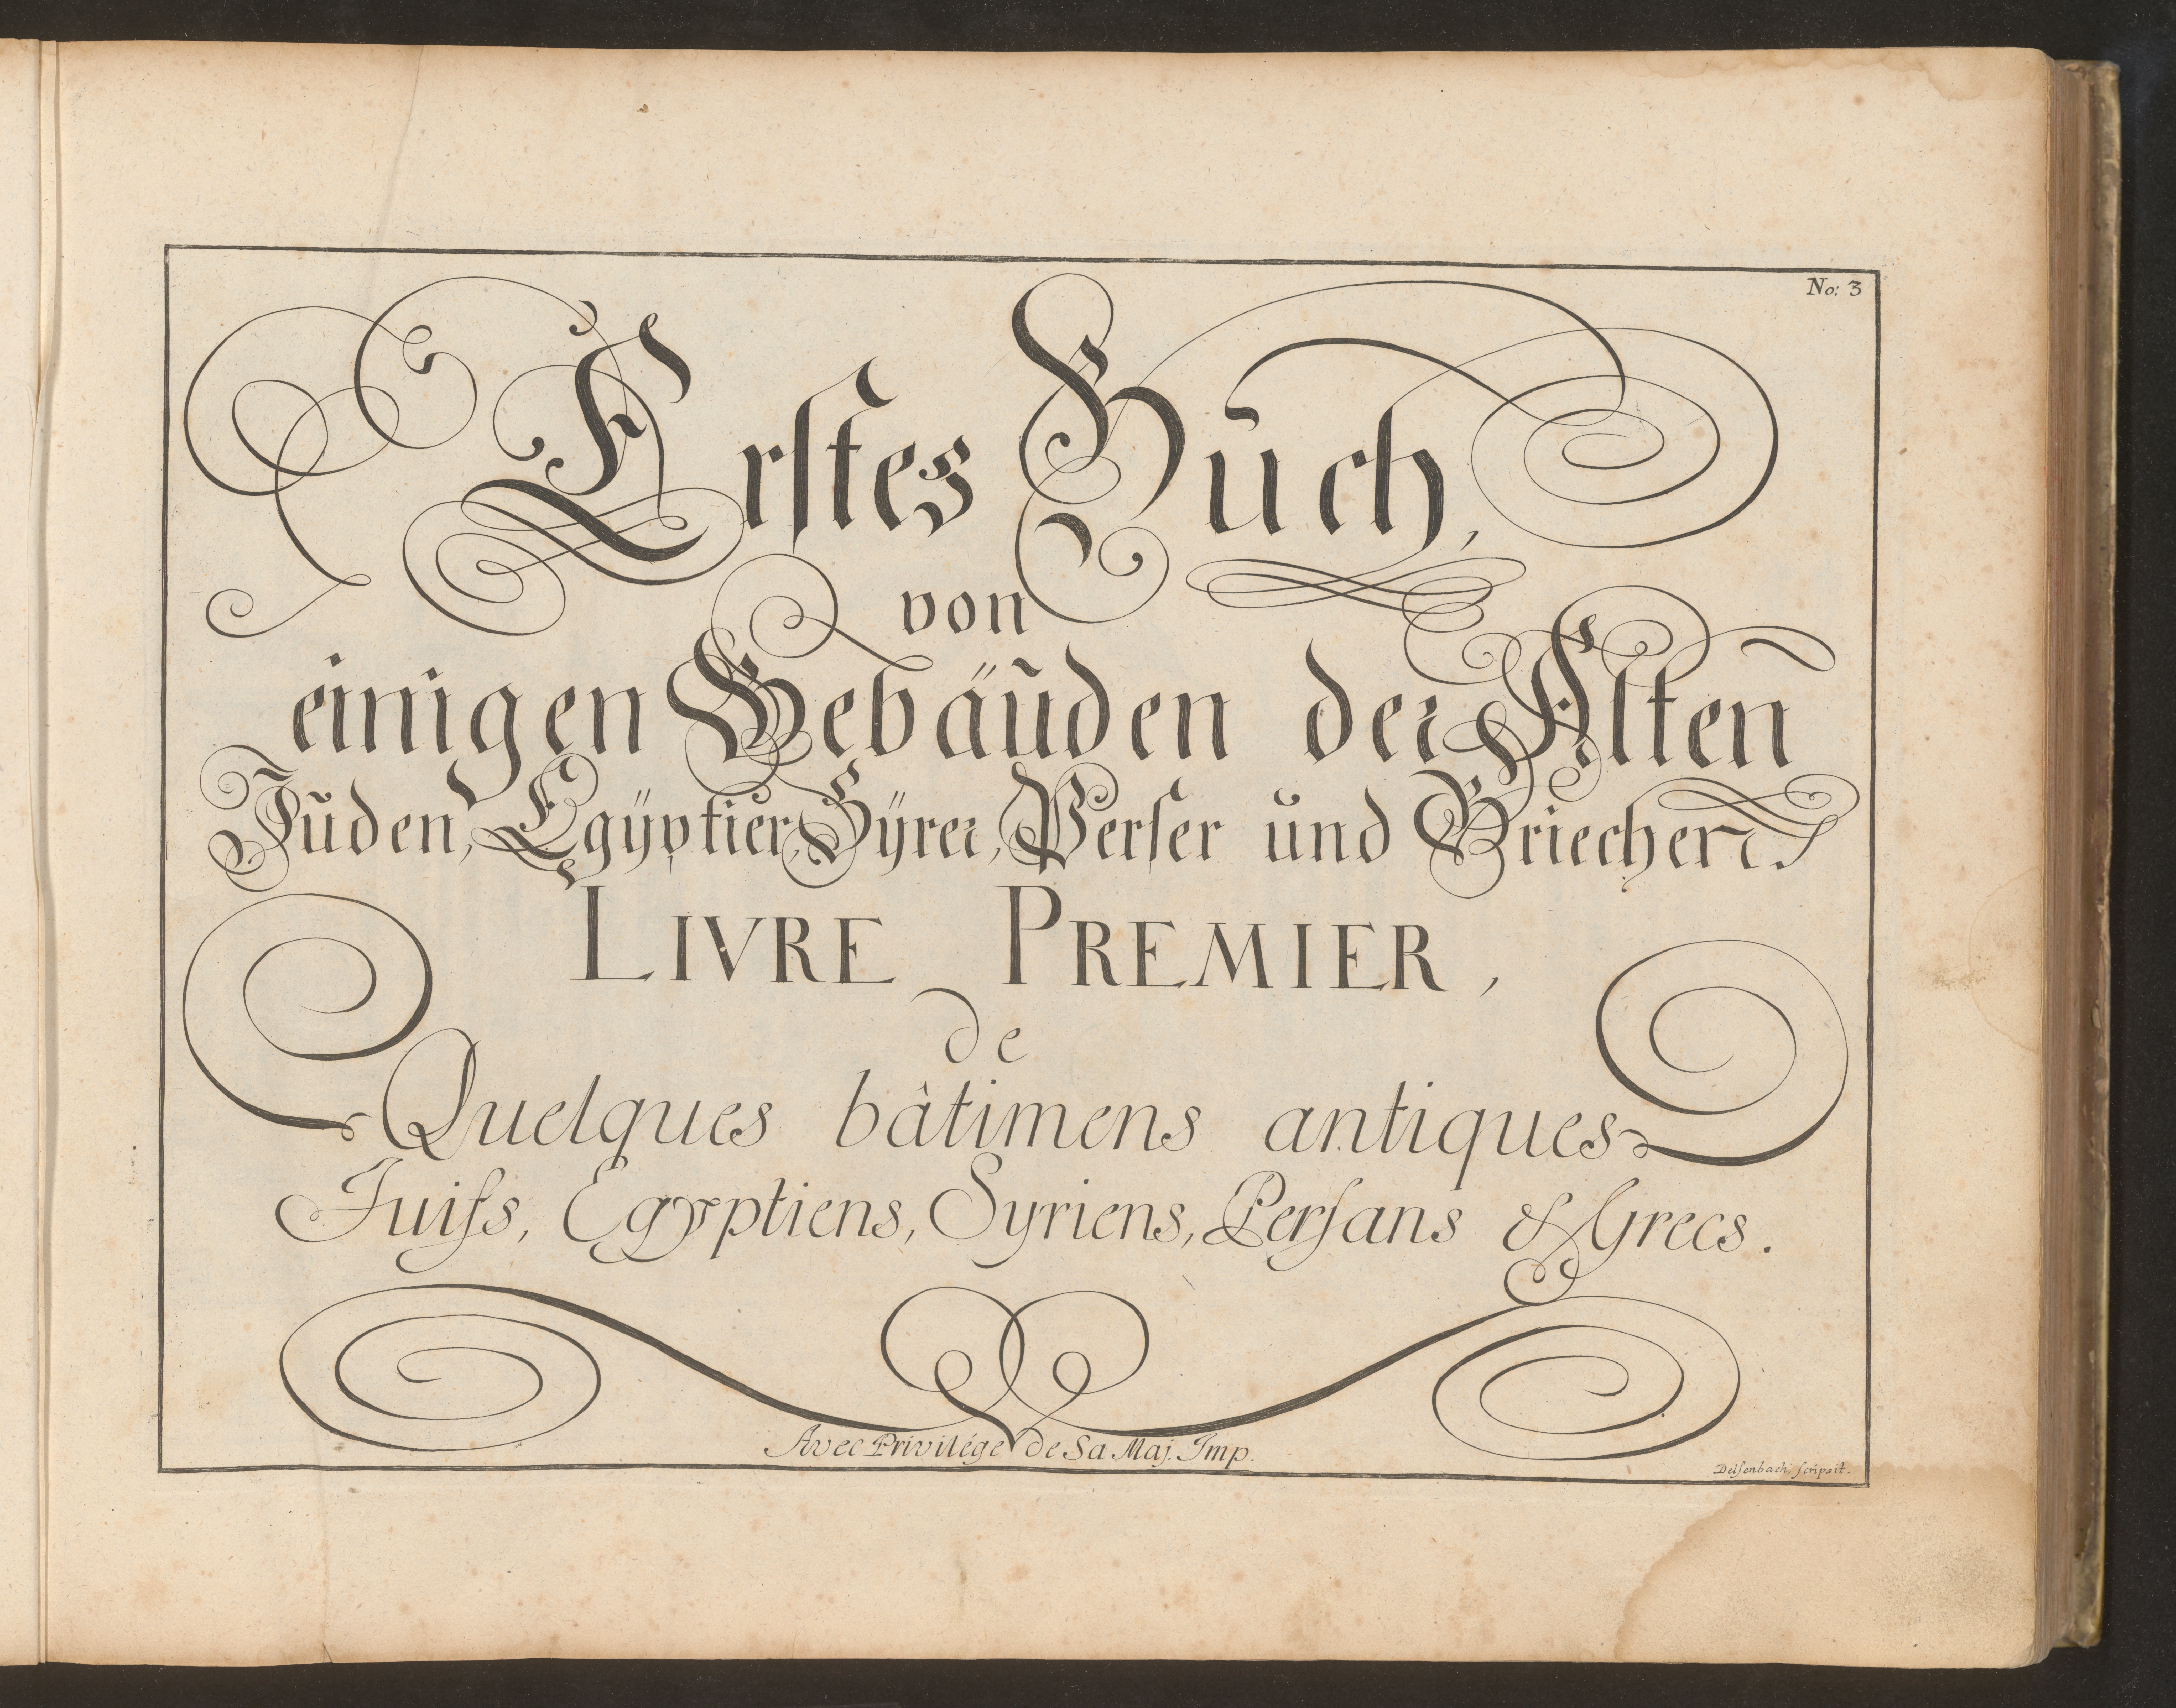 No: 3
Erstes Buch,
von
einigen Gebäuden der Alten
Juden, Egÿptier, Sÿrer, Perser und Griechen.
LIVRE PREMIER,
de
Quelques bâtimens antiques
Juifs, Egyptiens, Syriens, Perſans & Grecs.
Avec Privilége de Sa Maj. Imp.
Delſenbach ſcripsit.